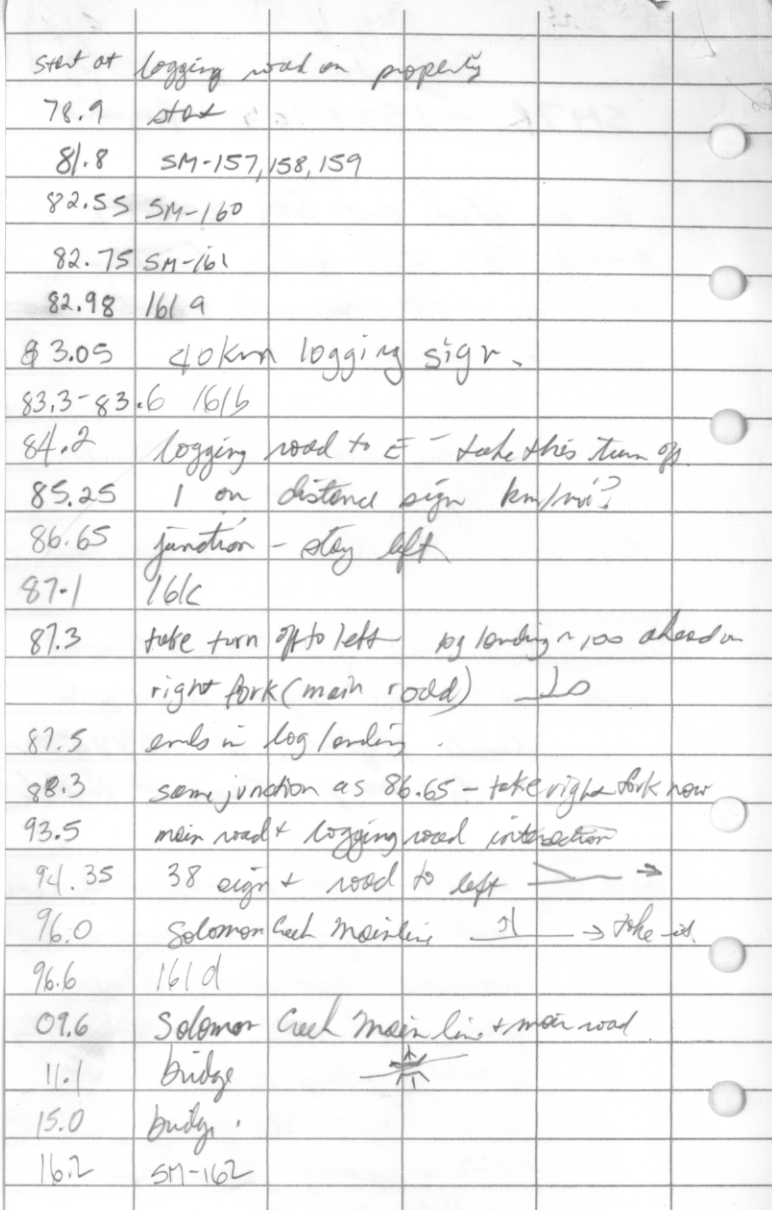 start at logging road on property
78.9 start
81.8 SM-157, 158, 159
82.55 SM-160
82.75 SM-161
82.98 161a
83.05 40km logging sign.
83.3-83.6 161b
84.2 logging road to E - take this turn off
85.25 1 on distance sign km/mi?
86.65 junction - stay left
87.1 161c
87.3 take turn off to left log landing ~ 100 ahead on
right fork (main road)
87.5 ends in log landing.
88.3 same junction as 86.65 - take right fork now
93.5 main road + logging road intersection
94.35 38 sign + road to left
96.0 Solomon Creek Mainline → take it
96.6 161d
09.6 Solomon Creek Main line + main road
11.1 bridge
15.0 bridge.
16.2 SM-162